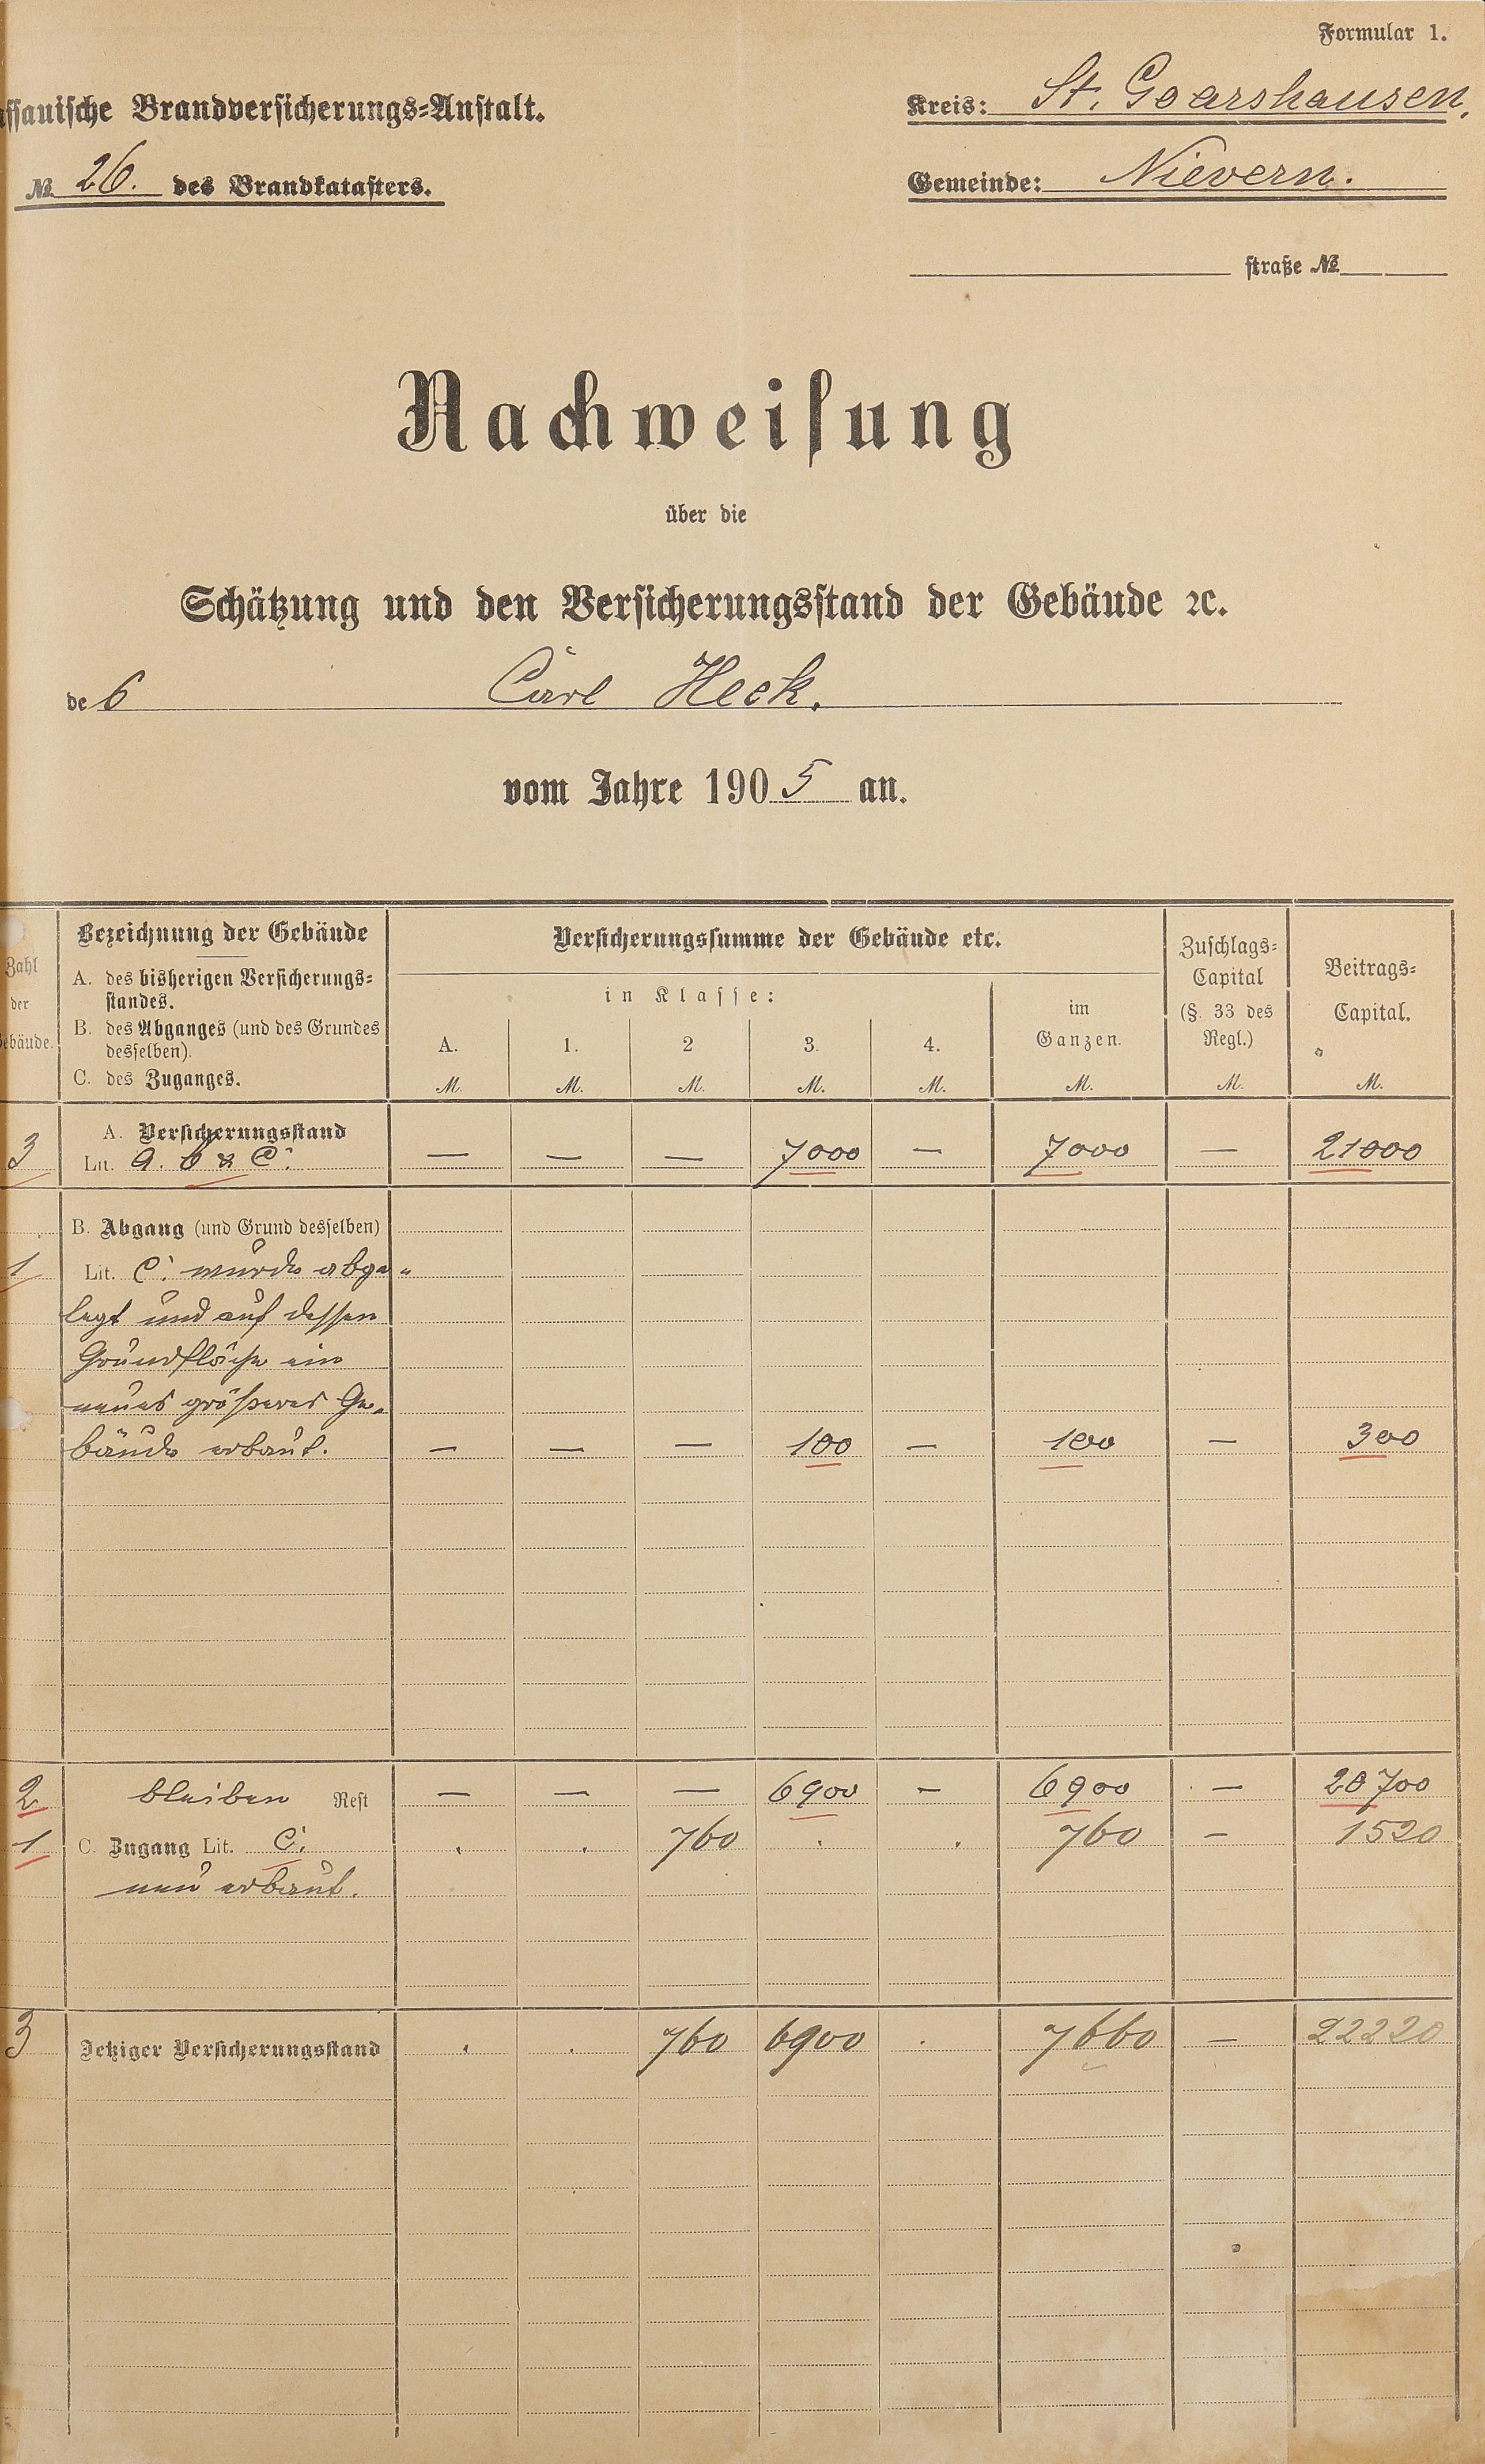 Formular 1.
ssauische Brandversicherungs-Anstalt.
Kreis: St. Goarshausen,
№ 26. des Brandkatasters.
Gemeinde: Nievern.
straße №
Nachweisung
über die
Schätzung und den Versicherungsstand der Gebäude ꝛc.
des Carl Heck.
vom Jahre 1905 an.
Zahl der Gebäude.
Bezeichnung der Gebäude
A. des bisherigen Versicherungs-
standes.
B. des Abganges (und des Grundes
desselben).
C. des Zuganges.
Versicherungssumme der Gebäude etc.
in Klasse:
A. 1. 2 3. 4.
im
Ganzen.
Zuschlags-
Capital
(§. 33 des
Regl.)
Beitrags-
Capital.
M. M. M. M. M. M. M. M.
A. Versicherungsstand
3 Lit. a. b & c. — — — 7000 — 7000 — 21000
B. Abgang (und Grund desselben)
1 Lit. c. wurde abge-
legt und auf dessen
Grundfläche ein
neues größeres Ge-
bäude erbaut. — — — 100 — 100 — 300
2 bleiben Rest — — — 6900 — 6900 — 20700
1 C. Zugang Lit. c. . . 760 . . 760 — 1520
neu erbaut.
3 Jetziger Versicherungsstand . . 760 6900 . 7660 — 22220